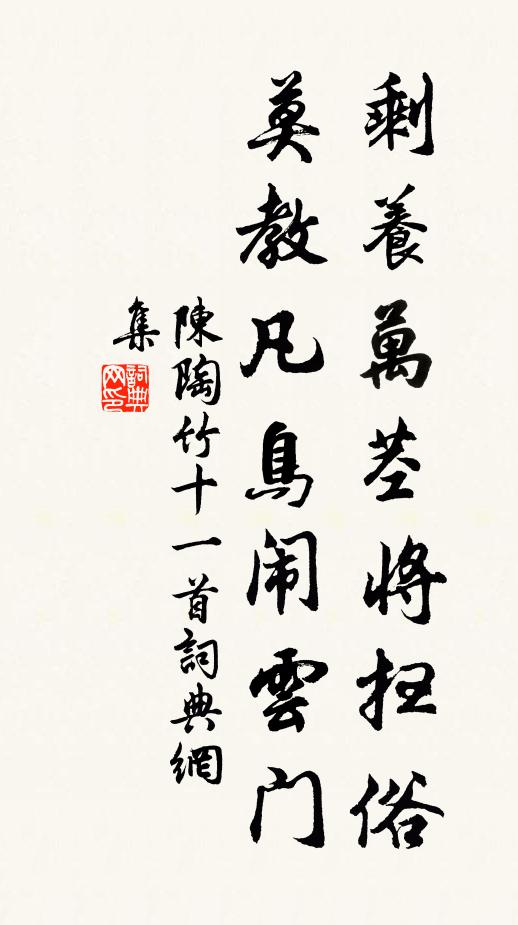 剩養萬莖將扫俗
莫教凡鳥闹雲门
陳陶竹十一首詞典網
集
詞典
网印